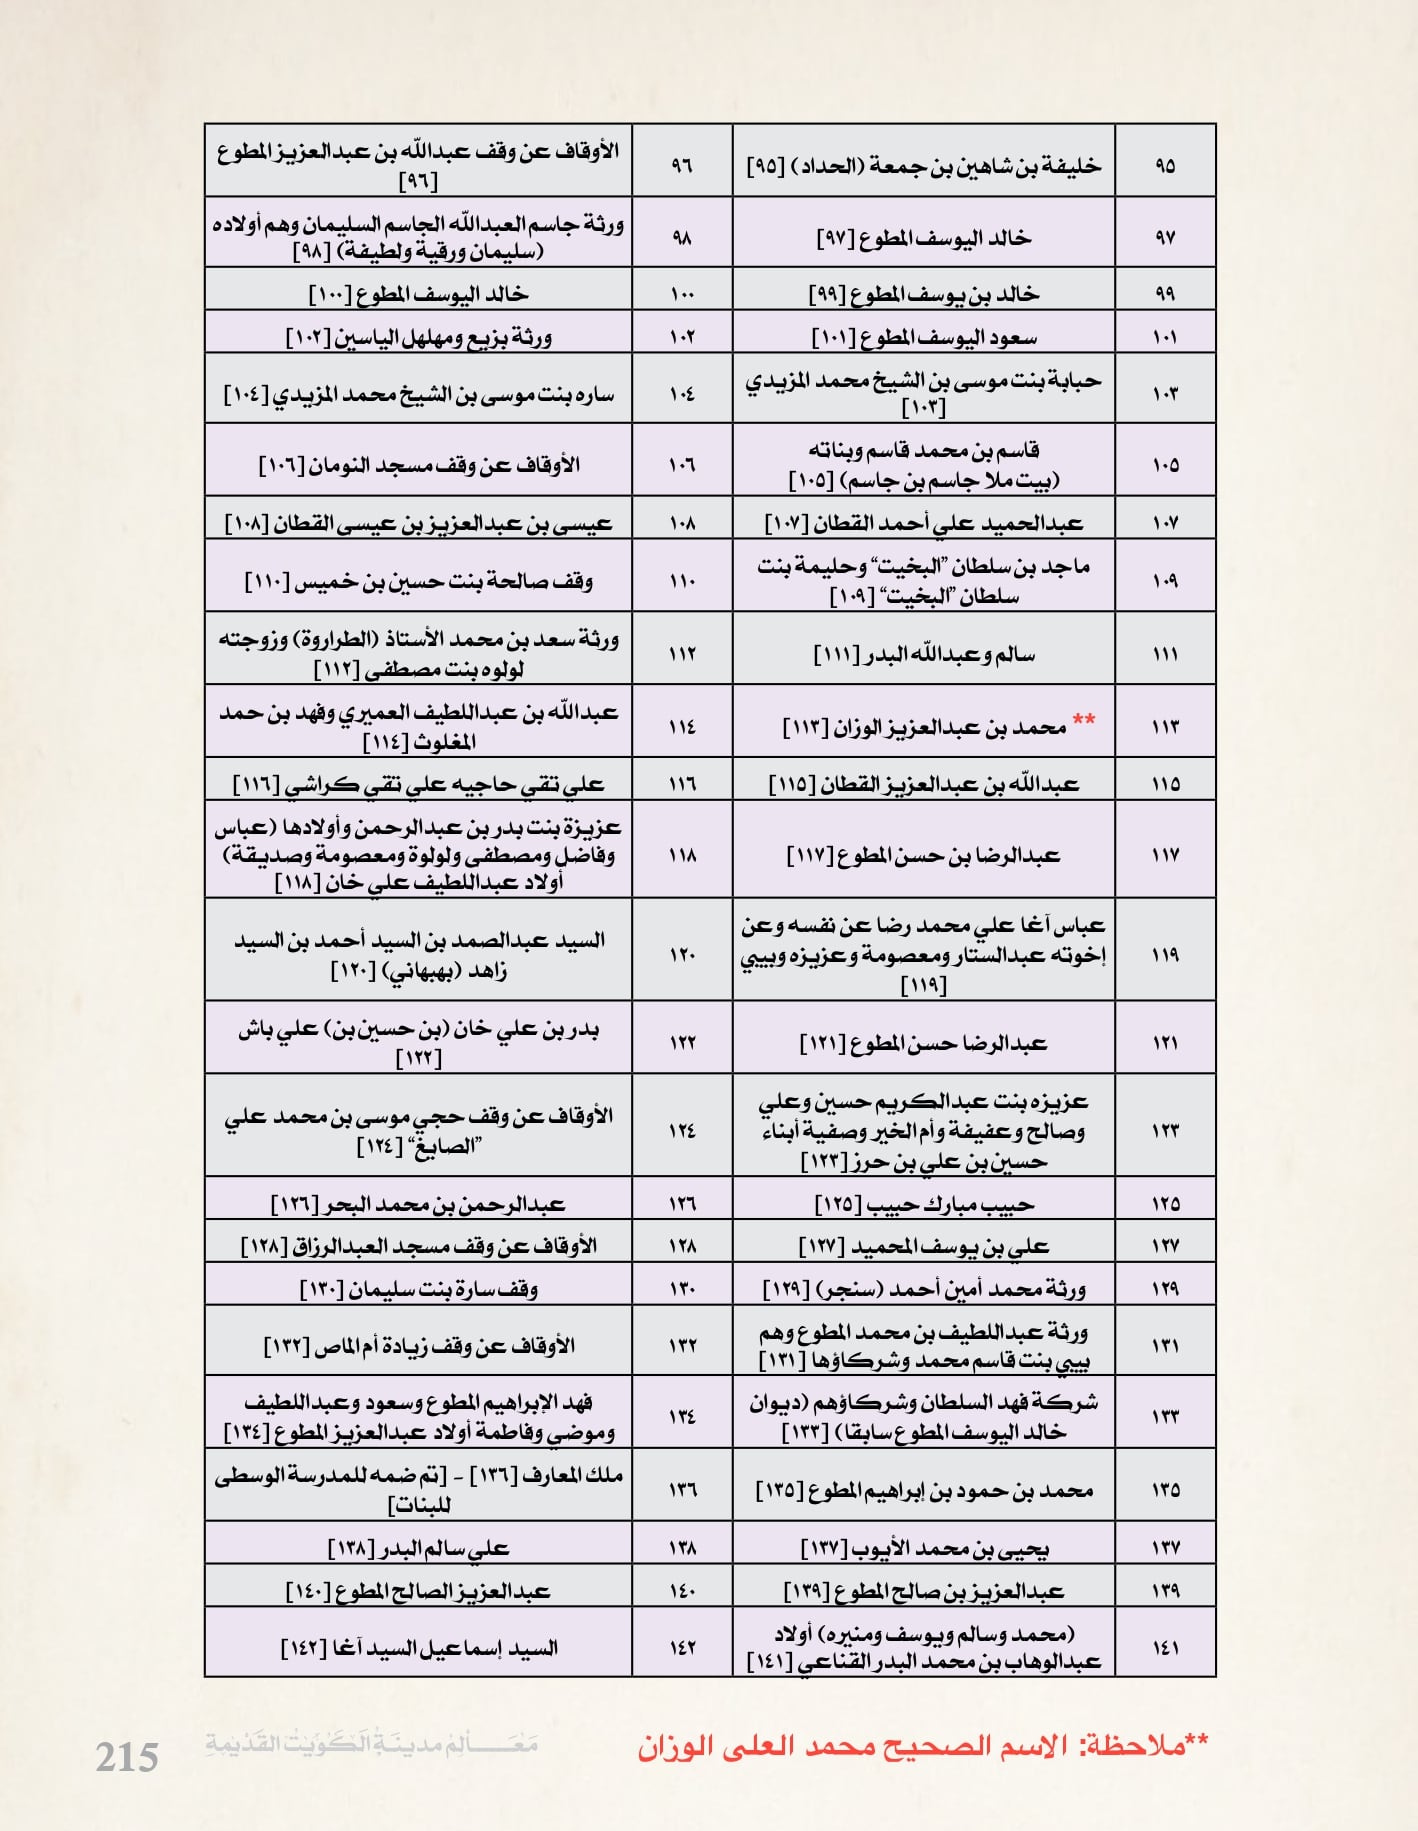 ٩٥
خليفة بن شاهين بن جمعة (الحداد) [٩٥]
٩٦
الأوقاف عن وقف عبدالله بن عبدالعزيز المطوع
[٩٦]
٩٧
خالد اليوسف المطوع [٩٧]
٩٨
ورثة جاسم العبدالله الجاسم السليمان وهم أولاده
(سليمان ورقية ولطيفة) [٩٨]
٩٩
خالد بن يوسف المطوع [٩٩]
١٠٠
خالد اليوسف المطوع [١٠٠]
١٠١
سعود اليوسف المطوع [١٠١]
١٠٢
ورثة بزيع ومهلهل الياسين [١٠٢]
١٠٣
حبابة بنت موسى بن الشيخ محمد المزيدي
[١٠٣]
١٠٤
ساره بنت موسى بن الشيخ محمد المزيدي [١٠٤]
١٠٥
قاسم بن محمد قاسم وبناته
(بيت ملا جاسم بن جاسم) [١٠٥]
١٠٦
الأوقاف عن وقف مسجد النومان [١٠٦]
١٠٧
عبدالحميد علي أحمد القطان [١٠٧]
١٠٨
عيسى بن عبدالعزيز بن عيسى القطان [١٠٨]
١٠٩
ماجد بن سلطان ”البخيت“ وحليمة بنت
سلطان ”البخيت“ [١٠٩]
١١٠
وقف صالحة بنت حسين بن خميس [١١٠]
١١١
سالم وعبدالله البدر [١١١]
١١٢
ورثة سعد بن محمد الأستاذ (الطراروة) وزوجته
لولوه بنت مصطفى [١١٢]
١١٣
** محمد بن عبدالعزيز الوزان [١١٣]
١١٤
عبدالله بن عبداللطيف العميري وفهد بن حمد
المغلوث [١١٤]
١١٥
عبدالله بن عبدالعزيز القطان [١١٥]
١١٦
علي تقي حاجيه علي تقي كراشي [١١٦]
١١٧
عبدالرضا بن حسن المطوع [١١٧]
١١٨
عزيزة بنت بدر بن عبدالرحمن وأولادها (عباس
وفاضل ومصطفى ولولوة ومعصومة وصديقة)
أولاد عبداللطيف علي خان [١١٨]
١١٩
عباس آغا علي محمد رضا عن نفسه وعن
إخوته عبدالستار ومعصومة وعزيزه وبيبي
[١١٩]
١٢٠
السيد عبدالصمد بن السيد أحمد بن السيد
زاهد (بهبهاني) [١٢٠]
١٢١
عبدالرضا حسن المطوع [١٢١]
١٢٢
بدر بن علي خان (بن حسين بن) علي باش
[١٢٢]
١٢٣
عزيزه بنت عبدالكريم حسين وعلي
وصالح وعفيفة وأم الخير وصفية أبناء
حسين بن علي بن حرز [١٢٣]
١٢٤
الأوقاف عن وقف حجي موسى بن محمد علي
”الصايغ“ [١٢٤]
١٢٥
حبيب مبارك حبيب [١٢٥]
١٢٦
عبدالرحمن بن محمد البحر [١٢٦]
١٢٧
علي بن يوسف المحميد [١٢٧]
١٢٨
الأوقاف عن وقف مسجد العبدالرزاق [١٢٨]
١٢٩
ورثة محمد أمين أحمد (سنجر) [١٢٩]
١٣٠
وقف سارة بنت سليمان [١٣٠]
١٣١
ورثة عبداللطيف بن محمد المطوع وهم
بيبي بنت قاسم محمد وشركاؤها [١٣١]
١٣٢
الأوقاف عن وقف زيادة أم الماص [١٣٢]
١٣٣
شركة فهد السلطان وشركاؤهم (ديوان
خالد اليوسف المطوع سابقا) [١٣٣]
١٣٤
فهد الإبراهيم المطوع وسعود وعبداللطيف
وموضي وفاطمة أولاد عبدالعزيز المطوع [١٣٤]
١٣٥
محمد بن حمود بن إبراهيم المطوع [١٣٥]
١٣٦
ملك المعارف [١٣٦] - [تم ضمه للمدرسة الوسطى
للبنات]
١٣٧
يحيى بن محمد الأيوب [١٣٧]
١٣٨
علي سالم البدر [١٣٨]
١٣٩
عبدالعزيز بن صالح المطوع [١٣٩]
١٤٠
عبدالعزيز الصالح المطوع [١٤٠]
١٤١
(محمد وسالم ويوسف ومنيره) أولاد
عبدالوهاب بن محمد البدر القناعي [١٤١]
١٤٢
السيد إسماعيل السيد آغا [١٤٢]
**ملاحظة: الاسم الصحيح محمد العلى الوزان
مَعَـالِم مدينَةِ الكُوَيْتِ القَدْيْمِةِ
215